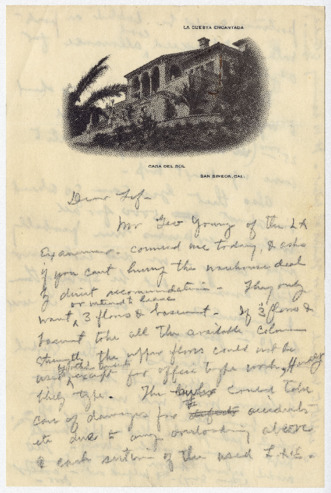 LA CUESTA ENCANTADA
CASA DEL SOL
SAN SIMEON, CAL.
Dear Jef-
Mr Geo Young of the LA
Examiner me today, & asks
if you cant hurry the warehouse deal
by direct recommendation. They only
or intend to lease
want 3 floors & basement. If 3 floors &
basement take all the available column
strength the upper floors could not be
used except for office type work,
type. The
care of damages for accidents
etc due to any overloading above
& each section of the used